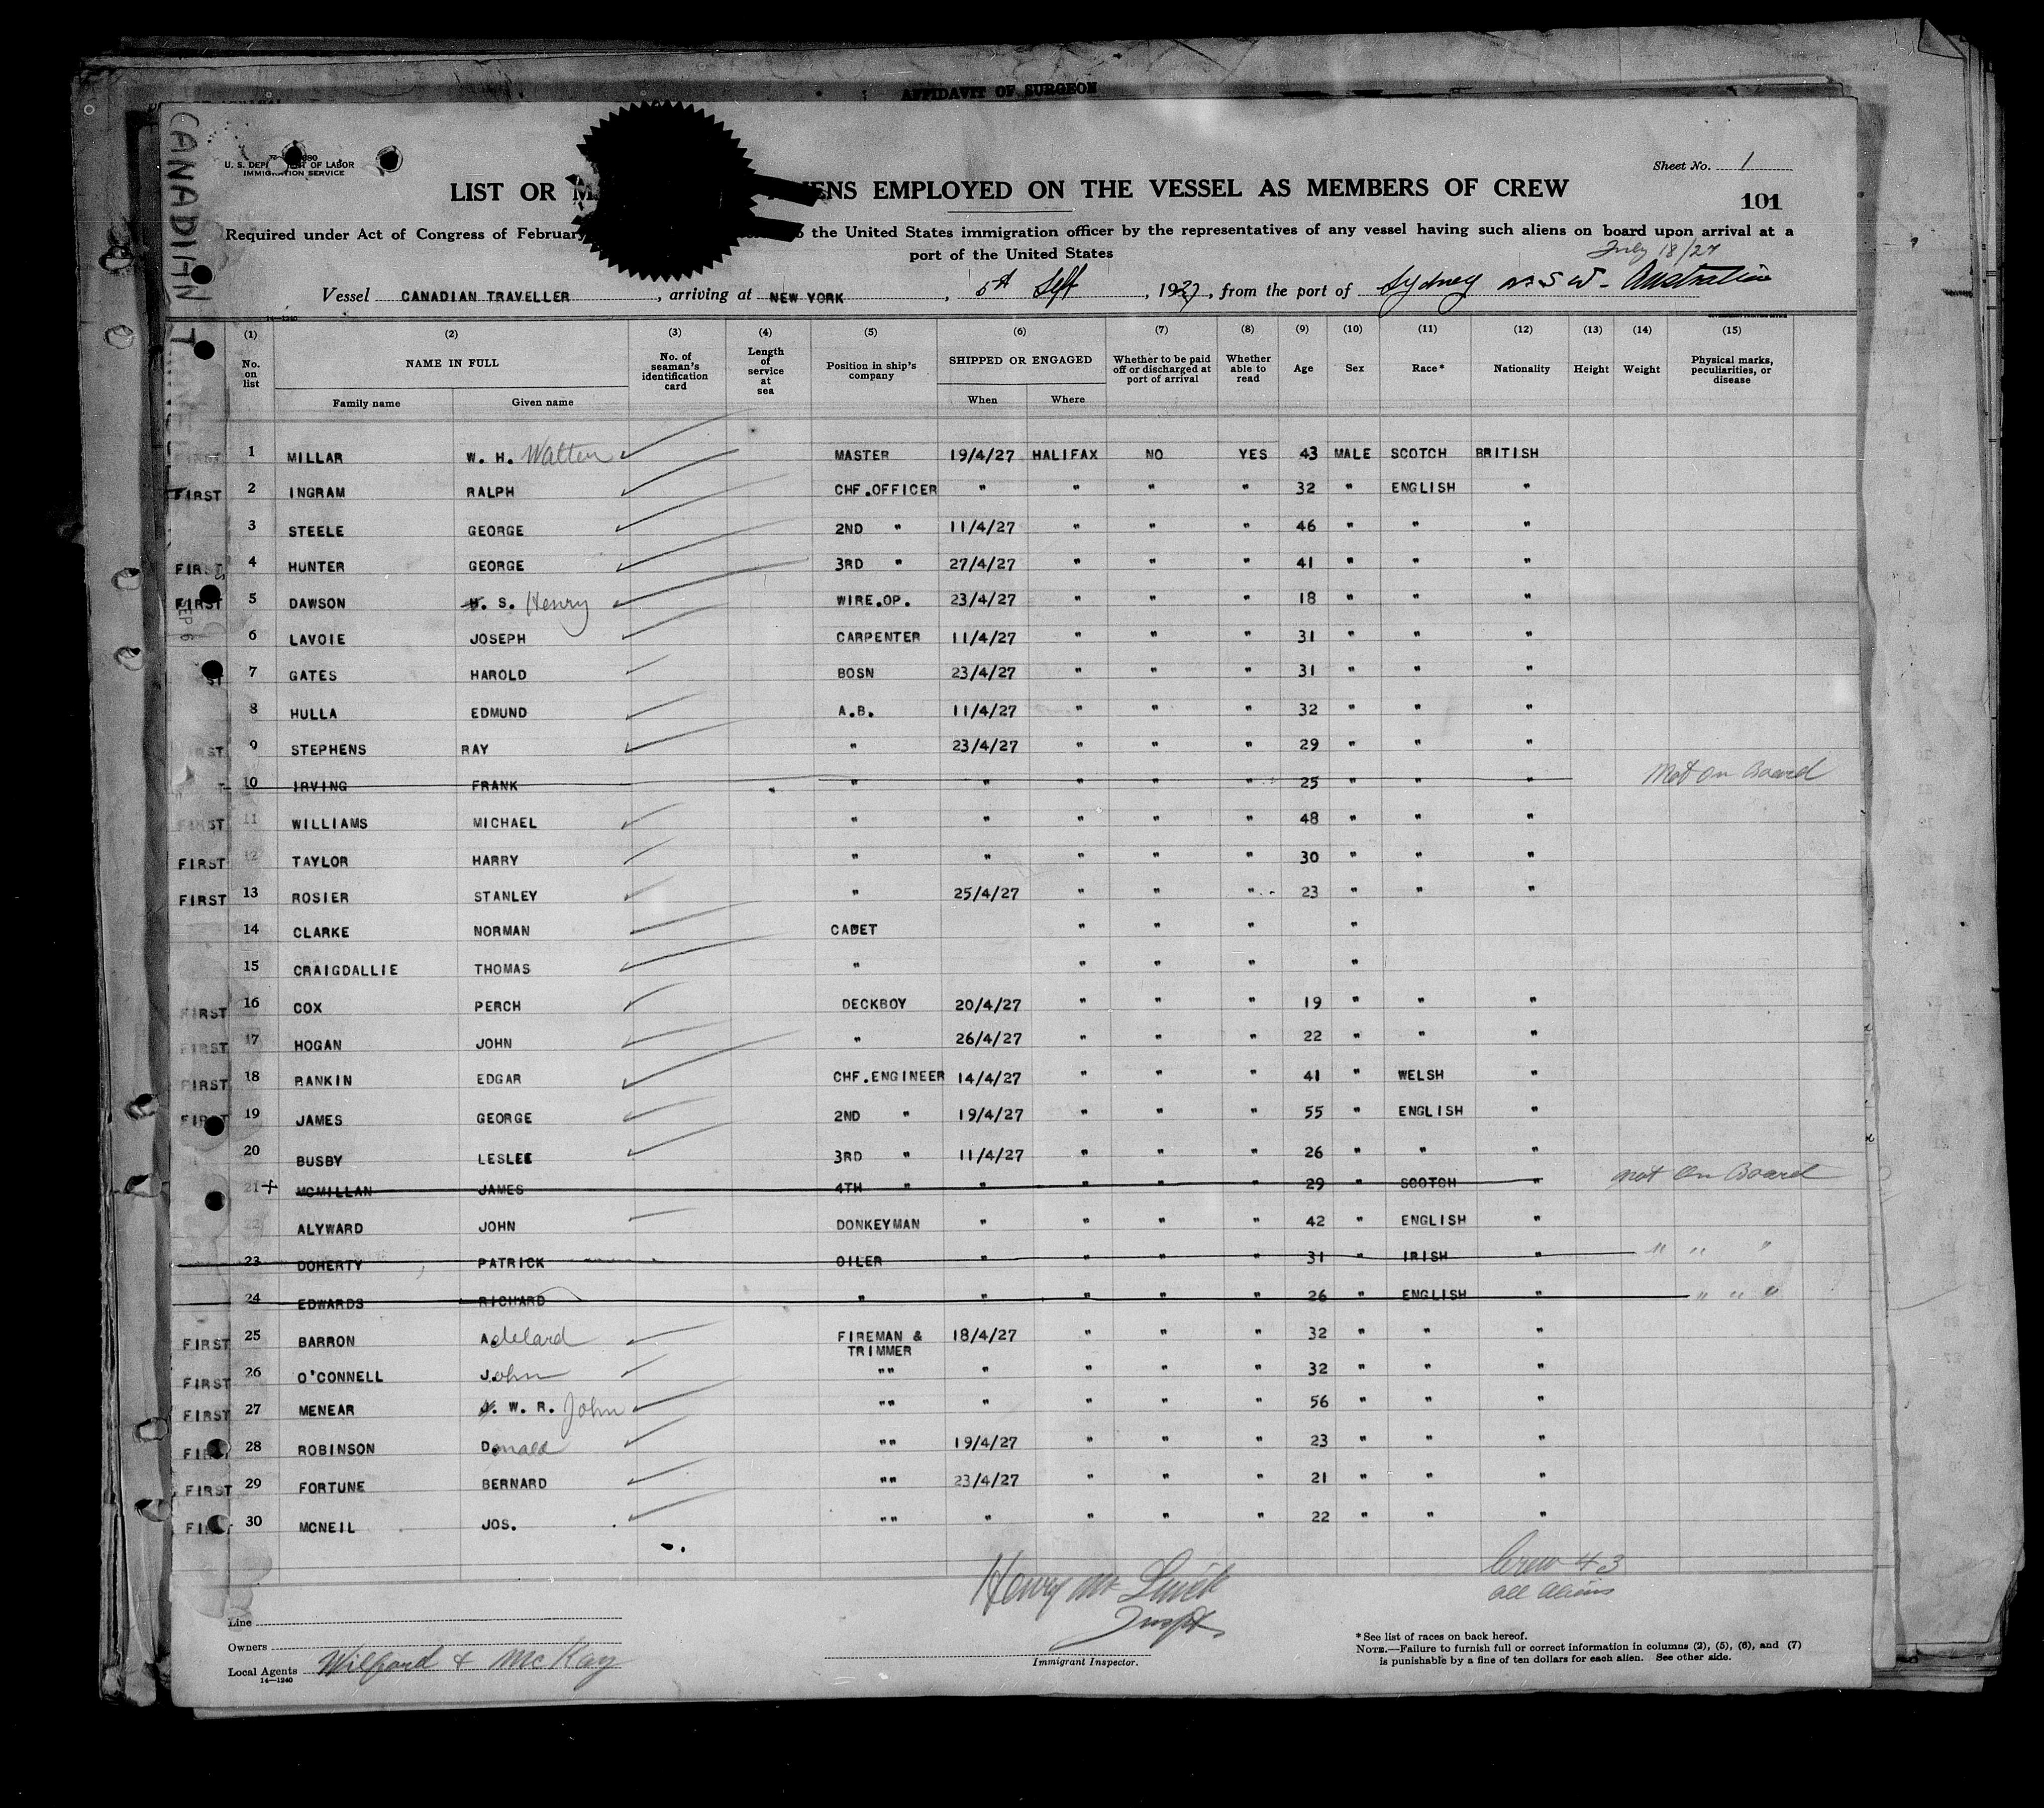 AFFIDAVIT OF SURGEON
CANADIAN T
U. S. DEPT OF LABOR
IMMIGRATION SERVICE
Sheet No. 1
LIST OR ALIENS EMPLOYED ON THE VESSEL AS MEMBERS OF CREW
101
Required under Act of Congress of February the United States immigration officer by the representatives of any vessel having such aliens on board upon arrival at a
port of the United States
July 18/27
Vessel CANADIAN TRAVELLER, arriving at NEW YORK, 5th Sept, 1927, from the port of Sydney N.S.W. Australia
14—1240
(1) (2) (3) (4) (5) (6) (7) (8) (9) (10) (11) (12) (13) (14) (15)
No. on list NAME IN FULL No. of seaman's identification card Length of service at sea Position in ship's company SHIPPED OR ENGAGED Whether to be paid off or discharged at port of arrival Whether able to read Age Sex Race* Nationality Height Weight Physical marks, peculiarities, or disease
Family name Given name When Where
FIRST 1 MILLAR W. H. Walter MASTER 19/4/27 HALIFAX NO YES 43 MALE SCOTCH BRITISH
FIRST 2 INGRAM RALPH CHF.OFFICER " " " " 32 " ENGLISH "
3 STEELE GEORGE 2ND " 11/4/27 " " " 46 " " "
FIRST 4 HUNTER GEORGE 3RD " 27/4/27 " " " 41 " " "
FIRST 5 DAWSON H. S. Henry WIRE.OP. 23/4/27 " " " 18 " " "
6 LAVOIE JOSEPH CARPENTER 11/4/27 " " " 31 " " "
ST 7 GATES HAROLD BOSN 23/4/27 " " " 31 " " "
8 HULLA EDMUND A.B. 11/4/27 " " " 32 " " "
9 STEPHENS RAY " 23/4/27 " " " 29 " " "
10 IRVING FRANK " " " " " 25 " " " Not on Board
FIRST 11 WILLIAMS MICHAEL " " " " " 48 " " "
FIRST 12 TAYLOR HARRY " " " " " 30 " " "
FIRST 13 ROSIER STANLEY " 25/4/27 " " " 23 " " "
14 CLARKE NORMAN CADET " " " "
15 CRAIGDALLIE THOMAS " " " " "
FIRST 16 COX PERCH DECKBOY 20/4/27 " " " 19 " " "
FIRST 17 HOGAN JOHN " 26/4/27 " " " 22 " " "
FIRST 18 RANKIN EDGAR CHF.ENGINEER 14/4/27 " " " 41 " WELSH "
FIRST 19 JAMES GEORGE 2ND " 19/4/27 " " " 55 " ENGLISH "
20 BUSBY LESLEE 3RD " 11/4/27 " " " 26 " " "
21 + MCMILLAN JAMES 4TH " " " " " 29 " SCOTCH " Not On Board
22 ALYWARD JOHN DONKEYMAN " " " " 42 " ENGLISH "
23 DOHERTY PATRICK OILER " " " " 31 " IRISH " " " "
24 EDWARDS RICHARD " " " " " 26 " ENGLISH " " " "
FIRST 25 BARRON Adelard FIREMAN & 18/4/27 " " " 32 " " "
TRIMMER
FIRST 26 O'CONNELL John "" " " " " 32 " " "
FIRST 27 MENEAR J. W. R. John "" " " " " 56 " " "
FIRST 28 ROBINSON Donald "" 19/4/27 " " " 23 " " "
FIRST 29 FORTUNE BERNARD "" 23/4/27 " " " 21 " " "
FIRST 30 MCNEIL JOS. "" " " " " 22 " " "
Crew 43
all aliens
Henry
Inspt.
Line
Owners
Local Agents Wilford & McKay
14—1240
Immigrant Inspector.
*See list of races on back hereof.
NOTE.—Failure to furnish full or correct information in columns (2), (5), (6), and (7)
is punishable by a fine of ten dollars for each alien. See other side.